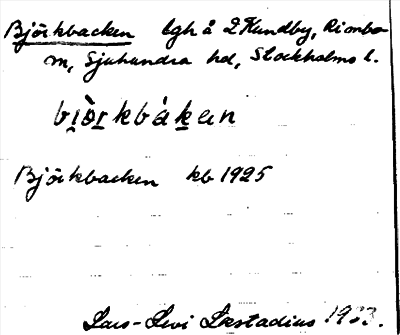 Björkbacken lgh å 2 Kundby, Rimbo
m, Sjuhundra hd, Stockholms l.
bi̯ö̀r̯kbákan
Björkbacken kb 1925
Lars-Levi Læstadius 1933.